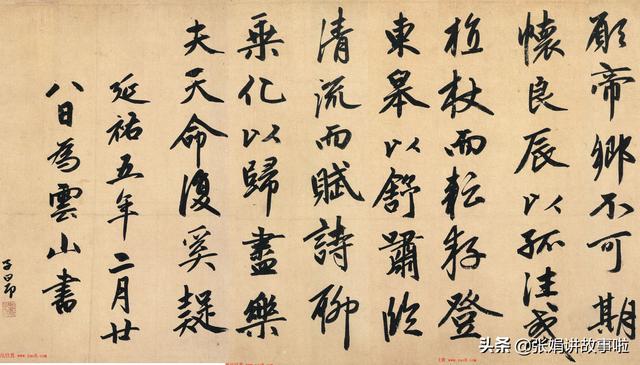 願帝鄉不可期
懷良辰以孤往或
植杖而耘耔登
東皋以舒嘯臨
清流而賦詩聊
乘化以歸盡樂
夫天命復奚疑
延祐五年二月廿
八日為雲山書
子昂
头条 @张娟讲故事啦